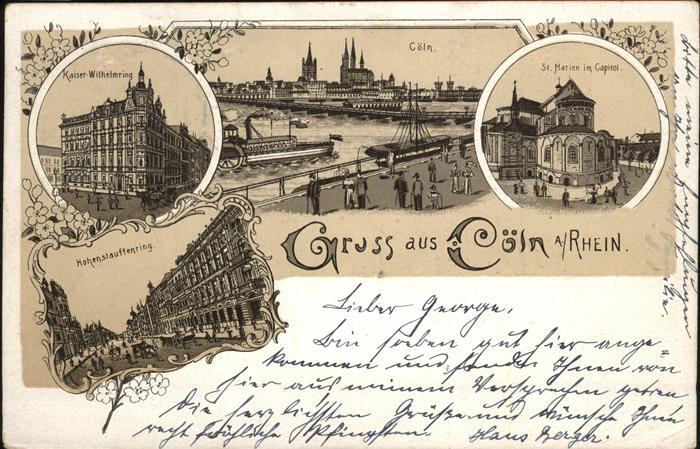 Cöln.
Kaiser-Wilhelmring
St. Marien im Capitol.
Hohenstauffenring.
Gruss aus Cöln A/RHEIN.
Lieber George,
bin soeben gut hier ange=
kommen und sende Ihnen von
hier aus meinem Versprechen getreu
die herzlichsten Grüsse und wünsche Ihnen
recht fröhliche Pfingsten. Hans Berger.